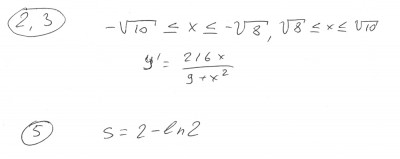 2,3 -√10 ≤ x ≤ -√8, √8 ≤ x ≤ √10
y' = 216x / 9+x²
5 S = 2-ln2